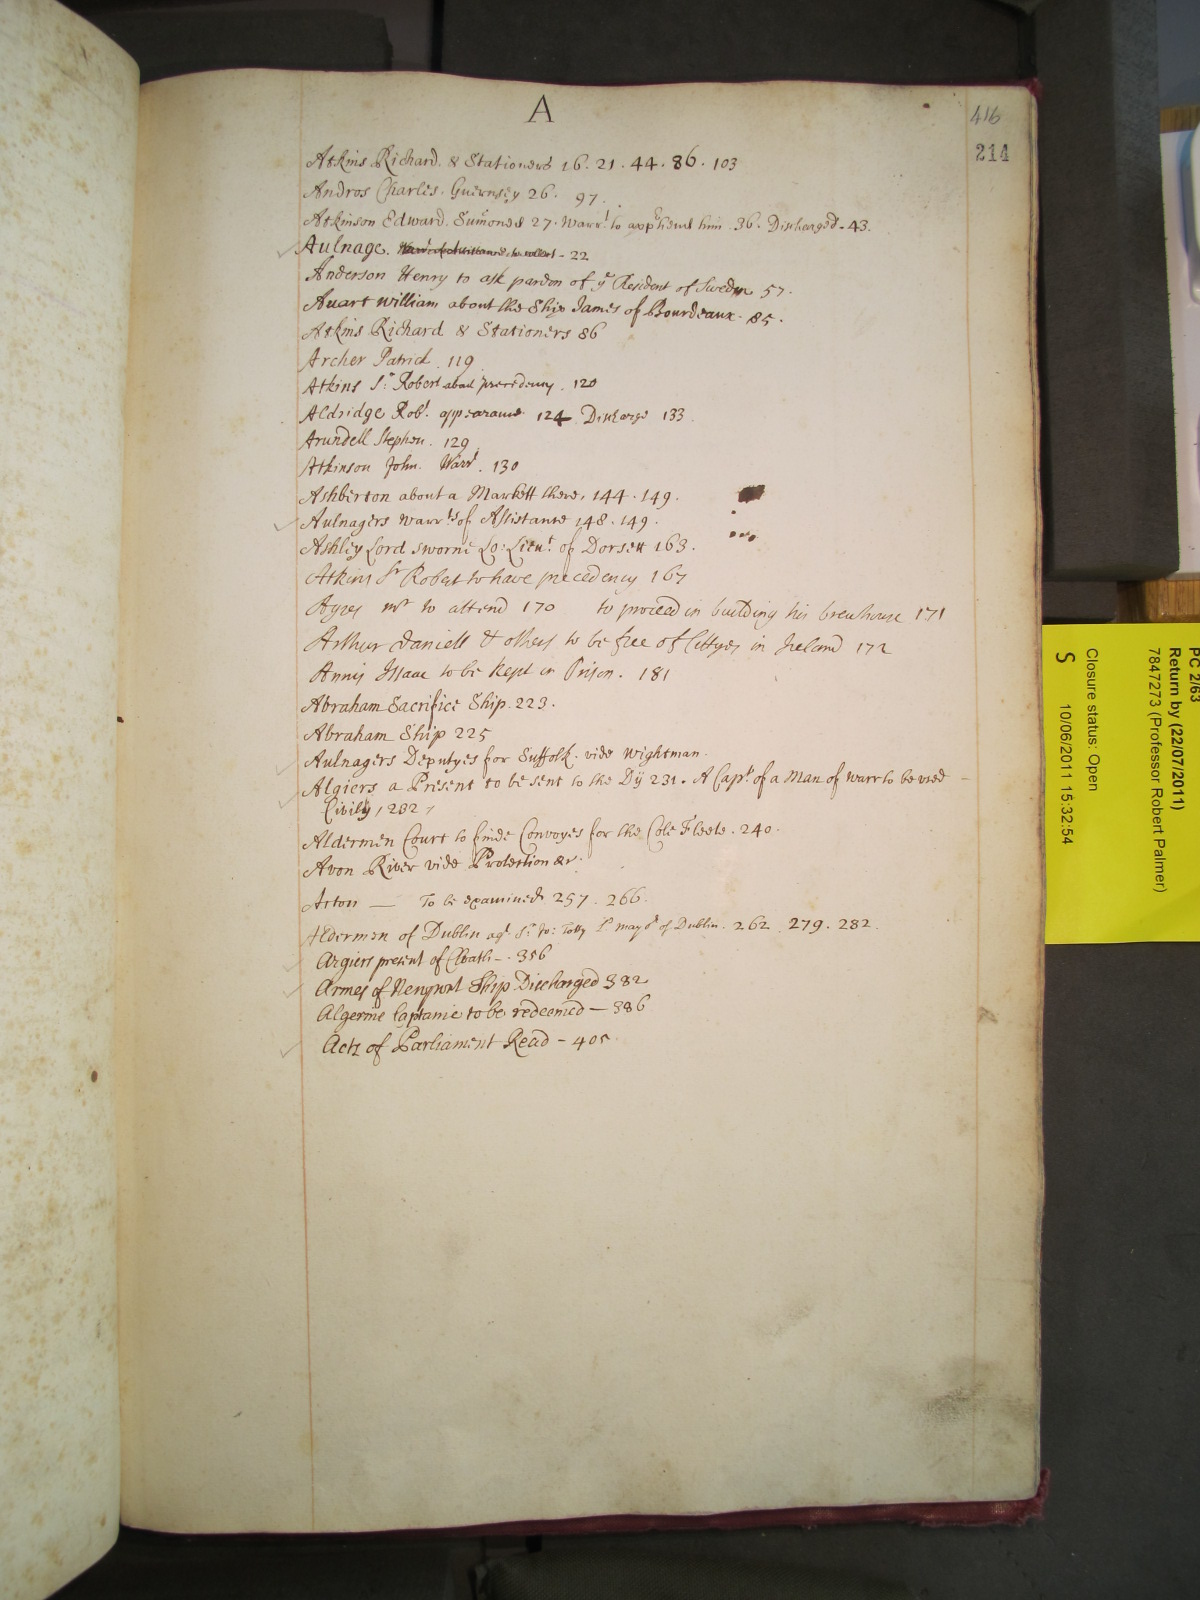 A
416
214
Atkins Richard. & Stationers 16. 21. 44. 86. 103
Andros Charles. Guernsey 26. 97.
Atkinson Edward. Sumoned 27. Warrt. to apprhend him. 36. Discharged - 43.
Aulnage. - 22
Anderson Henry to ask pardon of ye Resident of Sweden 57.
Auart William about the Ship James of Bourdeaux. 85.
Atkins Richard & Stationers 86
Archer Patrick. 119
Atkins Sr. Robert about precedency. 120
Aldridge Robt. appearance 124 Discharge 133
Arundell Stephen. 129
Atkinson John. Warrt. 130
Ashberton about a Markett there, 144. 149.
Aulnagers Warrts. of Assistance 148. 149.
Ashley Lord sworne Lo: Lieut. of Dorsett 163.
Atkins Sr Robert to have precedency 167
Ayres mr to attend 170 to proceed in building his brewhouse 171
Arthur Daniell & others to be free of Cittyes in Ireland 172
Annis Isaac to be kept in Prison. 181
Abraham Sacrifice Ship. 223.
Abraham Ship 225
Aulnagers Deputyes for Suffolk. vide Wightman.
Algiers a Present to be sent to the Dy 231. A Capt. of a Man of Warr to be used
Civily, 282
Aldermen Court to finde Convoyes for the Cole Fleete. 240.
Avon River vide Protection &c.
Acton — To be examined 257. 266.
Aldermen of Dublin agt Sr. Jo: Totty Ld. mayor of Dublin. 262. 279. 282.
Argiers present of -. 356
Armes of Ship Discharged 382
Algerine Captanie to be redeemed — 386
Acts of Parliament Read - 405.
PC 2/63
Return by (22/07/2011)
7847273 (Professor Robert Palmer)
Closure status: Open
S 10/06/2011 15:32:54